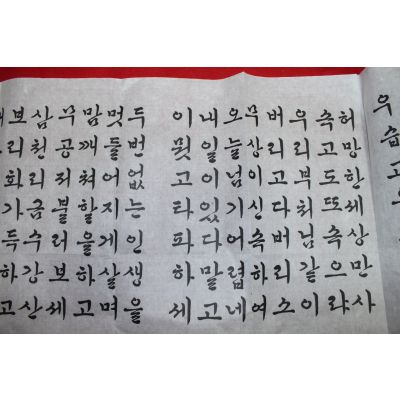 우습고
허망한세상만사
속고도또속으랴
우리부처님같이
버리고다버리소
무상이신속하여
오늘넘기어렵네
내일이있다말고
이묏고타파하세
두번없는인생을
멋들어지게살며
맘깨쳐할을하고
무공저불러보세
삼천리금수강산
보리화가득하고